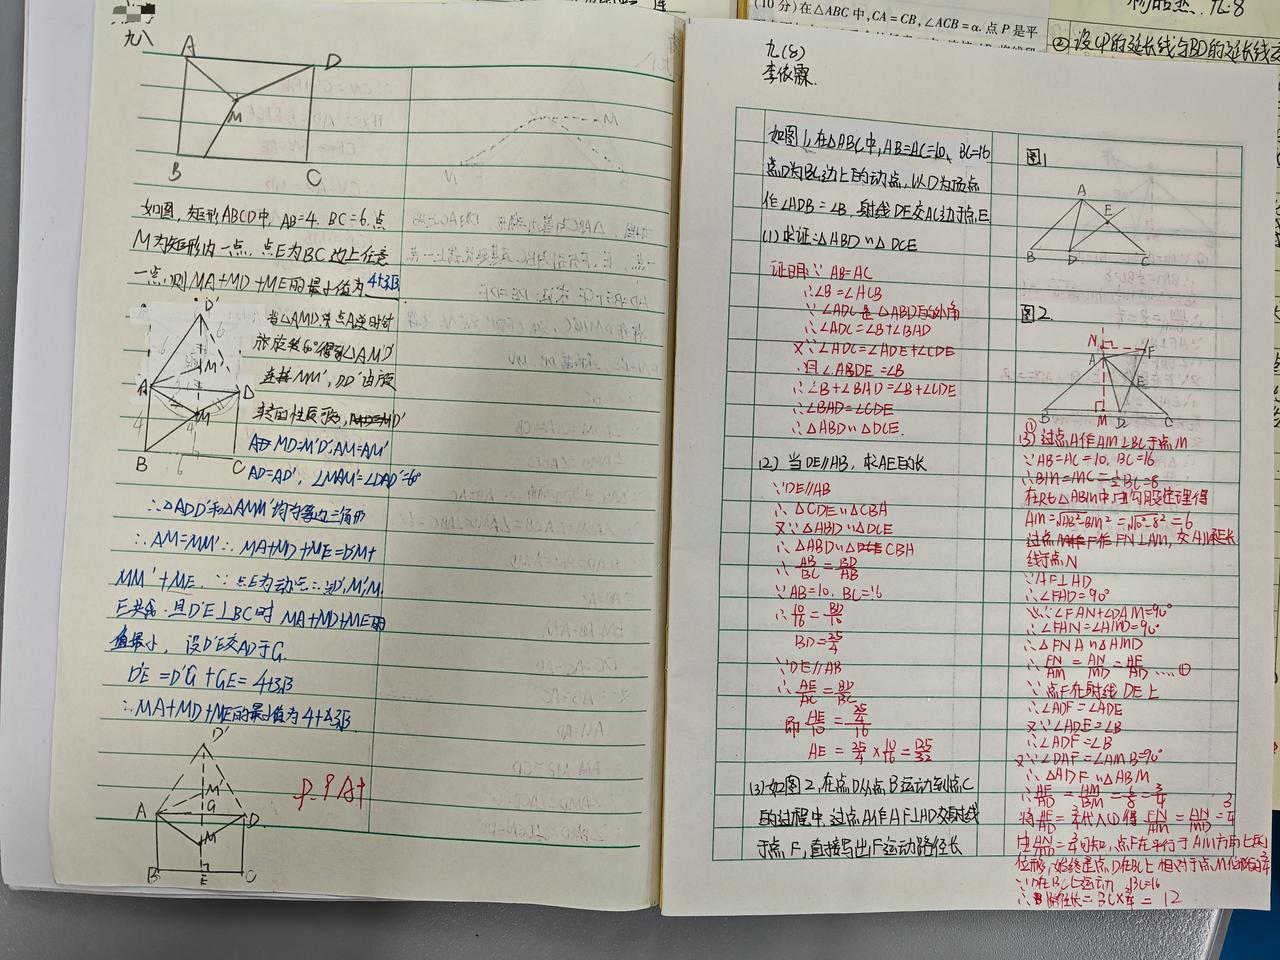 九八
A
D
M
B
C
如图,矩形ABCD中,AB=4.BC=6.点
M为矩形内一点,点E为BC边上任意
一点,则MA+MD+ME的最小值为4+3√3
D'
6
M'
A
D
M
4
B
6
C
当△AMD绕点A逆时针
旋转60°得到△AM'D'
连接MM',DD'由旋
转的性质可知,
MD=M'D',AM=AM'
AD=AD',∠MAM'=∠DAD'=60°
∴△ADD'和△AMM'均为等边三角形
∴AM=MM'∴MA+MD+ME=D'M'+
MM'+ME.∵点E为动点∴当D',M',M.
E共线,且D'E⊥BC时 MA+MD+ME的
值最小,设D'E交AD于G
D'E=D'G+GE=4+3√3
∴MA+MD+ME的最小值为4+3√3
D'
M'
A
G
D
M
B
E
C
(10分)在△ABC中,CA=CB,∠ACB=α.点P是平
九.8
②设CP的延长线与BD的延长线交
九(8)
李依霖.
如图1,在△ABC中,AB=AC=10,BC=16
点D为BC边上的动点,以D为顶点
作∠ADB=∠B,射线DE交AC边于点E
(1)求证:△ABD∽△DCE
证明:∵AB=AC
∴∠B=∠ACB
∵∠ADC是△ABD的外角
∴∠ADC=∠B+∠BAD
又∵∠ADC=∠ADE+∠CDE
且∠ABDE=∠B
∴∠B+∠BAD=∠B+∠CDE
∴∠BAD=∠CDE
∴△ABD∽△DCE.
(2)当DE//AB,求AE的长
∵DE//AB
∴△CDE∽△CBA
又∵△ABD∽△DCE
∴△ABD∽△CBA
∴AB/BC=BD/AB
∵AB=10,BC=16
∴10/16=BD/10
BD=25/4
∵DE//AB
∴AE/AC=BD/BC
即AE/10=25/4/16
AE=25/4×10/16=125/32
(3)如图2,在点D从点B运动到点C
的过程中,过点A作AF⊥AD交射线
于点F,直接写出F运动路径长
图1
A
E
B
D
C
图2.
N
F
A
E
B
M
D
C
①
(3)过点A作AM⊥BC于点M
∵AB=AC=10,BC=16
∴BM=MC=1/2BC=8
在Rt△ABM中,由勾股定理得
AM=√AB²-BM²=√10²-8²=6
过点F作FN⊥AM,交AM延长
线于点N
∵AF⊥AD
∴∠FAD=90°
∴∠FAN+∠DAM=90°
∴∠FNA=∠AMD=90°
∴△FNA∽△AMD
∴FN/AM=AN/MD=AF/AD……①
∵点F在射线DE上
∴∠ADF=∠ADE
又∵∠ADE=∠B
∴∠ADF=∠B
又∵∠DAF=∠AMB=90°
∴△ADF∽△ABM
∴AF/AD=AM/BM=6/8=3/4
将AF/AD=3/4代入①得FN/AM=AN/MD=3/4
由AN/MD=3/4可知,点F在平行于AM方向上的
位移,始终是点D在BC上相对于点M位移的3/4
∵D在BC上运动,BC=16
∴路径长=BC×3/4=12